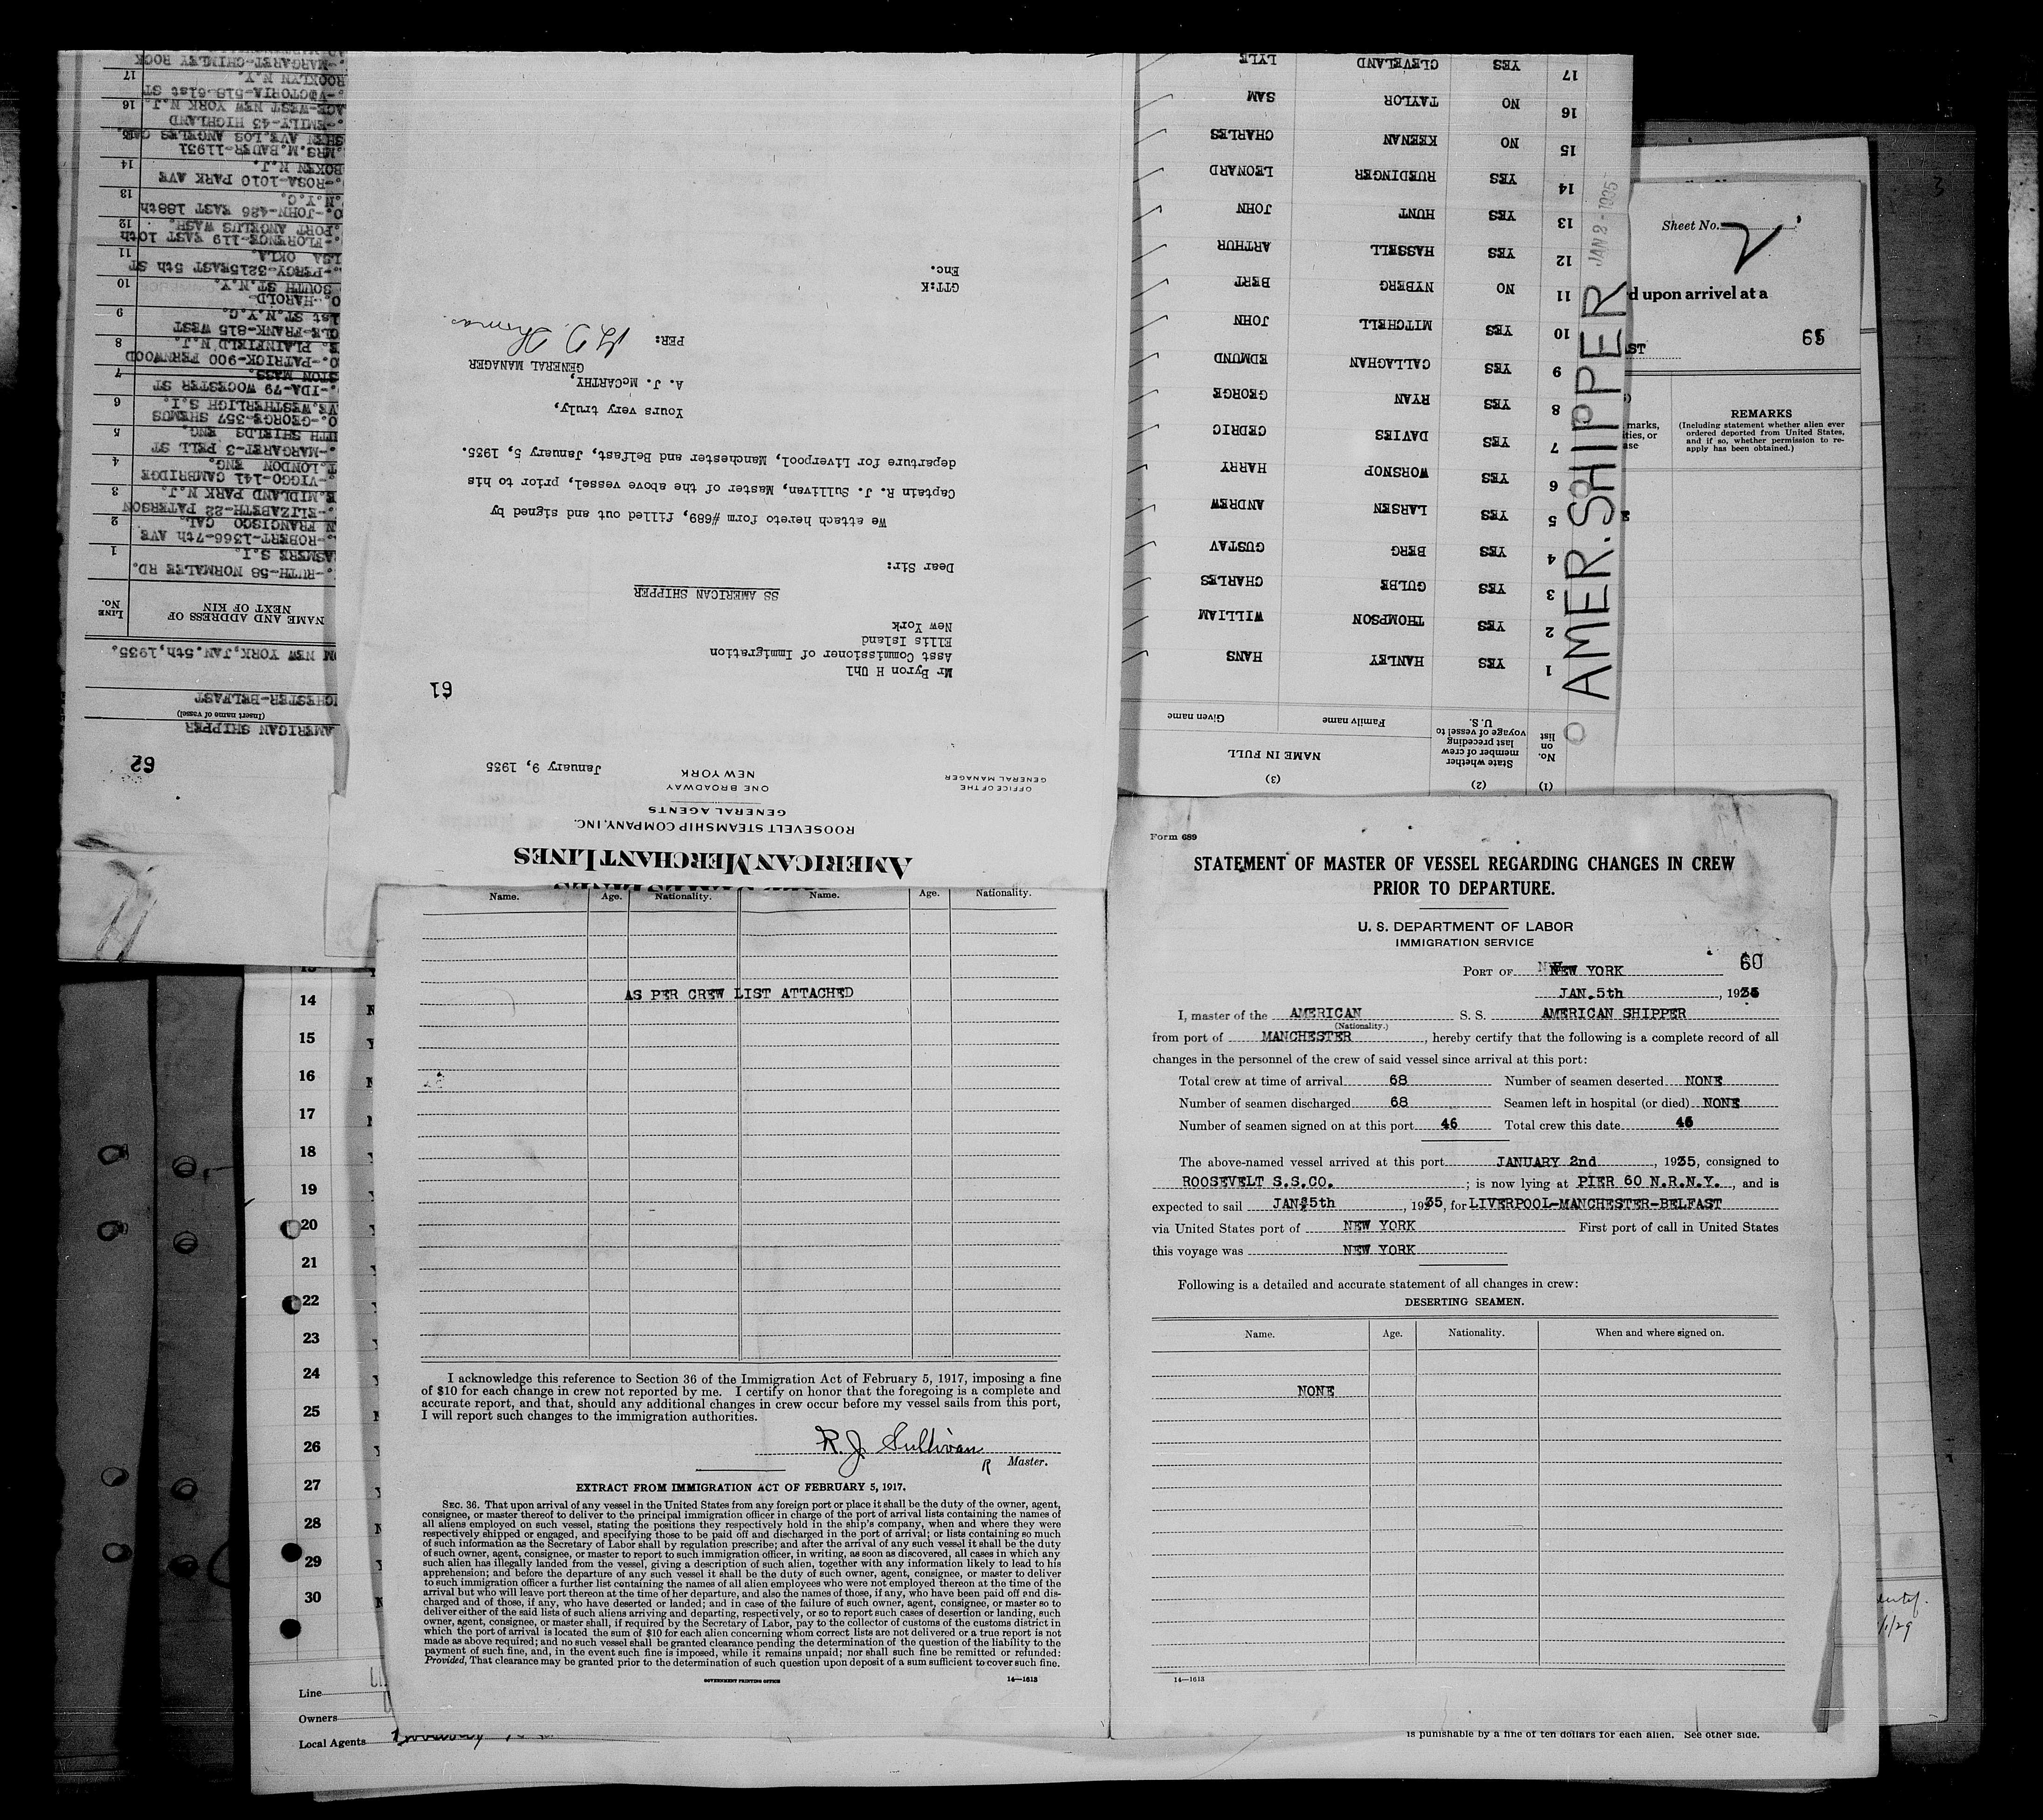 Form 689
STATEMENT OF MASTER OF VESSEL REGARDING CHANGES IN CREW
PRIOR TO DEPARTURE.
U. S. DEPARTMENT OF LABOR
IMMIGRATION SERVICE
60
PORT OF NEW YORK
JAN. 5th, 1935
I, master of the AMERICAN S. S. AMERICAN SHIPPER
(Nationality.)
from port of MANCHESTER, hereby certify that the following is a complete record of all
changes in the personnel of the crew of said vessel since arrival at this port:
Total crew at time of arrival 68 Number of seamen deserted NONE
Number of seamen discharged 68 Seamen left in hospital (or died) NONE
Number of seamen signed on at this port 46 Total crew this date 46
The above-named vessel arrived at this port JANUARY 2nd, 1935, consigned to
ROOSEVELT S.S.CO. ; is now lying at PIER 60 N.R.N.Y., and is
expected to sail JAN 5th, 1935, for LIVERPOOL-MANCHESTER-BELFAST
via United States port of NEW YORK First port of call in United States
this voyage was NEW YORK
Following is a detailed and accurate statement of all changes in crew:
DESERTING SEAMEN.
Name. Age. Nationality. When and where signed on.
NONE
14—1613
Name. Age. Nationality. Name. Age. Nationality.
AS PER CREW LIST ATTACHED
I acknowledge this reference to Section 36 of the Immigration Act of February 5, 1917, imposing a fine
of $10 for each change in crew not reported by me. I certify on honor that the foregoing is a complete and
accurate report, and that, should any additional changes in crew occur before my vessel sails from this port,
I will report such changes to the immigration authorities.
R. J. Sullivan
R Master.
EXTRACT FROM IMMIGRATION ACT OF FEBRUARY 5, 1917.
SEC. 36. That upon arrival of any vessel in the United States from any foreign port or place it shall be the duty of the owner, agent,
consignee, or master thereof to deliver to the principal immigration officer in charge of the port of arrival lists containing the names of
all aliens employed on such vessel, stating the positions they respectively hold in the ship's company, when and where they were
respectively shipped or engaged, and specifying those to be paid off and discharged in the port of arrival; or lists containing so much
of such information as the Secretary of Labor shall by regulation prescribe; and after the arrival of any such vessel it shall be the duty
of such owner, agent, consignee, or master to report to such immigration officer, in writing, as soon as discovered, all cases in which any
such alien has illegally landed from the vessel, giving a description of such alien, together with any information likely to lead to his
apprehension; and before the departure of any such vessel it shall be the duty of such owner, agent, consignee, or master to deliver
to such immigration officer a further list containing the names of all alien employees who were not employed thereon at the time of the
arrival but who will leave port thereon at the time of her departure, and also the names of those, if any, who have been paid off and dis-
charged and of those, if any, who have deserted or landed; and in case of the failure of such owner, agent, consignee, or master so to
deliver either of the said lists of such aliens arriving and departing, respectively, or so to report such cases of desertion or landing, such
owner, agent, consignee, or master shall, if required by the Secretary of Labor, pay to the collector of customs of the customs district in
which the port of arrival is located the sum of $10 for each alien concerning whom correct lists are not delivered or a true report is not
made as above required; and no such vessel shall be granted clearance pending the determination of the question of the liability to the
payment of such fine, and, in the event such fine is imposed, while it remains unpaid; nor shall such fine be remitted or refunded:
Provided, That clearance may be granted prior to the determination of such question upon deposit of a sum sufficient to cover such fine.
GOVERNMENT PRINTING OFFICE 14—1613
AMERICAN MERCHANT LINES
ROOSEVELT STEAMSHIP COMPANY, INC.
GENERAL AGENTS
ONE BROADWAY
NEW YORK
OFFICE OF THE
GENERAL MANAGER
January 9, 1935
61
Mr Byron H Uhl
Asst Commissioner of Immigration
Ellis Island
New York
SS AMERICAN SHIPPER
Dear Sir:
We attach hereto form #689, filled out and signed by
Captain R. J. Sullivan, Master of the above vessel, prior to his
departure for Liverpool, Manchester and Belfast, January 5, 1935.
Yours very truly,
A. J. McCARTHY,
GENERAL MANAGER
PER:
GTT:K
Enc.
62
AMERICAN SHIPPER
(Insert name of vessel)
CHESTER-BELFAST
OM NEW YORK, JAN. 5th, 1935.
NAME AND ADDRESS OF
NEXT OF KIN
LINE
No.
.-RUTH-58 NORMALEE RD.
ASMERE S.I. 1
.-ROBERT-1366-7th AVE
N FRANCISCO CAL. 2
.-ELIZABETH-22 PATERSON
E.MIDLAND PARK N.J. 3
.-VIGGO-141 CAMBRIDGE
T.LONDON ENG. 4
.-MARGARET-3 PELL ST
UTH SHIELDS ENG. 5
O.-GEORGE-357 SHEMUS
AVE.WESTHERLIGH S.I. 6
.-IDA-79 WOCESTER ST
STON MASS. 7
O.-PATRICK-900 FERNWOOD
E. PLAINFIELD N.J. 8
CLE-FRANK-815 WEST
1st ST.N.Y.C. 9
O.-HAROLD-
SOUTH ST.N.Y. 10
.-PERCY-3215EAST 5th ST
LSA OKLA. 11
.-FLORENCE-119 EAST 10th
PORT ANGELUS WASH. 12
O.-JOHN-426 EAST 188th
N.Y.C. 13
.-ROSA-1010 PARK AVE
BOKEN N.J. 14
.MRS.M.BADER-11931
SHEN AVE.LOS ANGELES CAL.
.-EMILY-43 HIGHLAND
AGE-WEST NEW YORK N.J. 16
.-VICTORIA-518-61st ST
ROOKLYN N.Y. 17
.-MARGARET-CHIMLEY ROCK
(1) (2) (3)
No. on list
State whether member of crew last preceding voyage of vessel to U.S.
NAME IN FULL
Family name Given name
1 YES HANLEY HANS
2 YES THOMPSON WILLIAM
3 YES GULBE CHARLES
4 YES BERG GUSTAV
5 YES LARSEN ANDREW
6 YES WORSNOP HARRY
7 YES DAVIES CEDRIC
8 YES RYAN GEORGE
9 YES CALLAGHAN EDMUND
10 YES MITCHELL JOHN
11 NO NYBERG BERT
12 YES HASSELL ARTHUR
13 YES HUNT JOHN
14 YES RUEDINGER LEONARD
15 NO KEENAN CHARLES
16 NO TAYLOR SAM
17 YES CLEVELAND LYLE
AMER. SHIPPER
JAN 2 - 1935
Sheet No. 2
d upon arrival at a
ST
REMARKS
(Including statement whether alien ever
ordered deported from United States,
and if so, whether permission to re-
apply has been obtained.)
marks,
ities, or
ase
14
15
16
17
18
19
20
21
22
23
24
25
26
27
28
29
30
Line
Owners
Local Agents
is punishable by a fine of ten dollars for each alien. See other side.